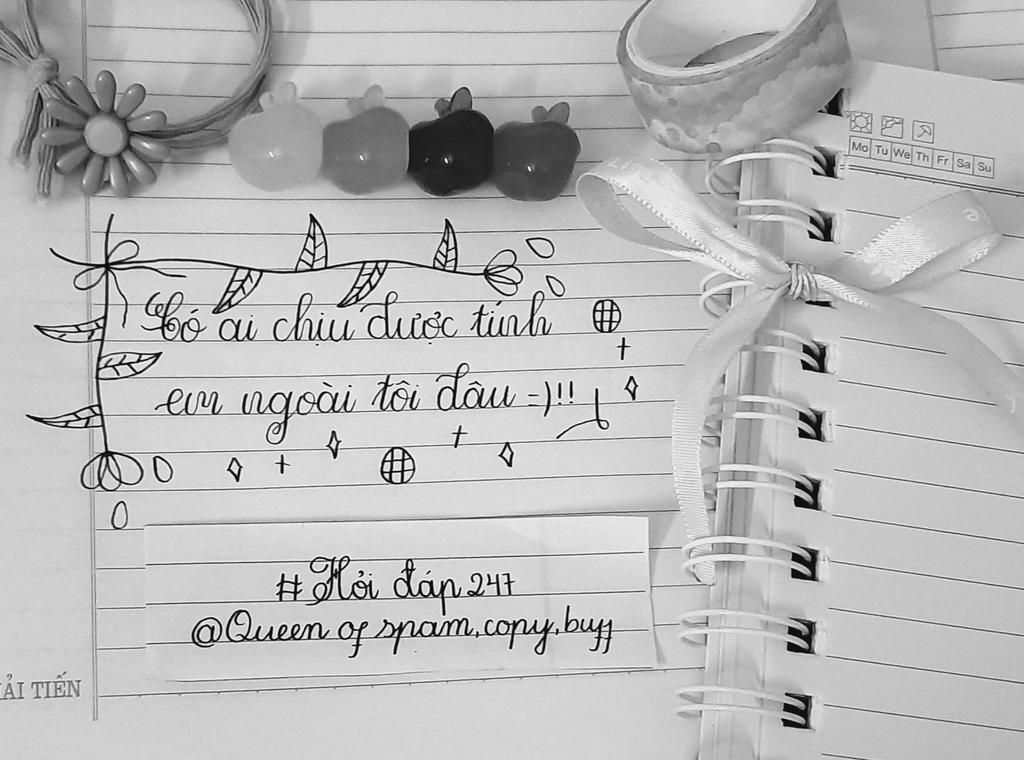 Mo Tu We Th Fr Sa Su
Có ai chịu được tính
em ngoài tôi đâu =)!!
#Hỏi đáp 247
@Queen of spam,copy,buff
ẢI TIẾN